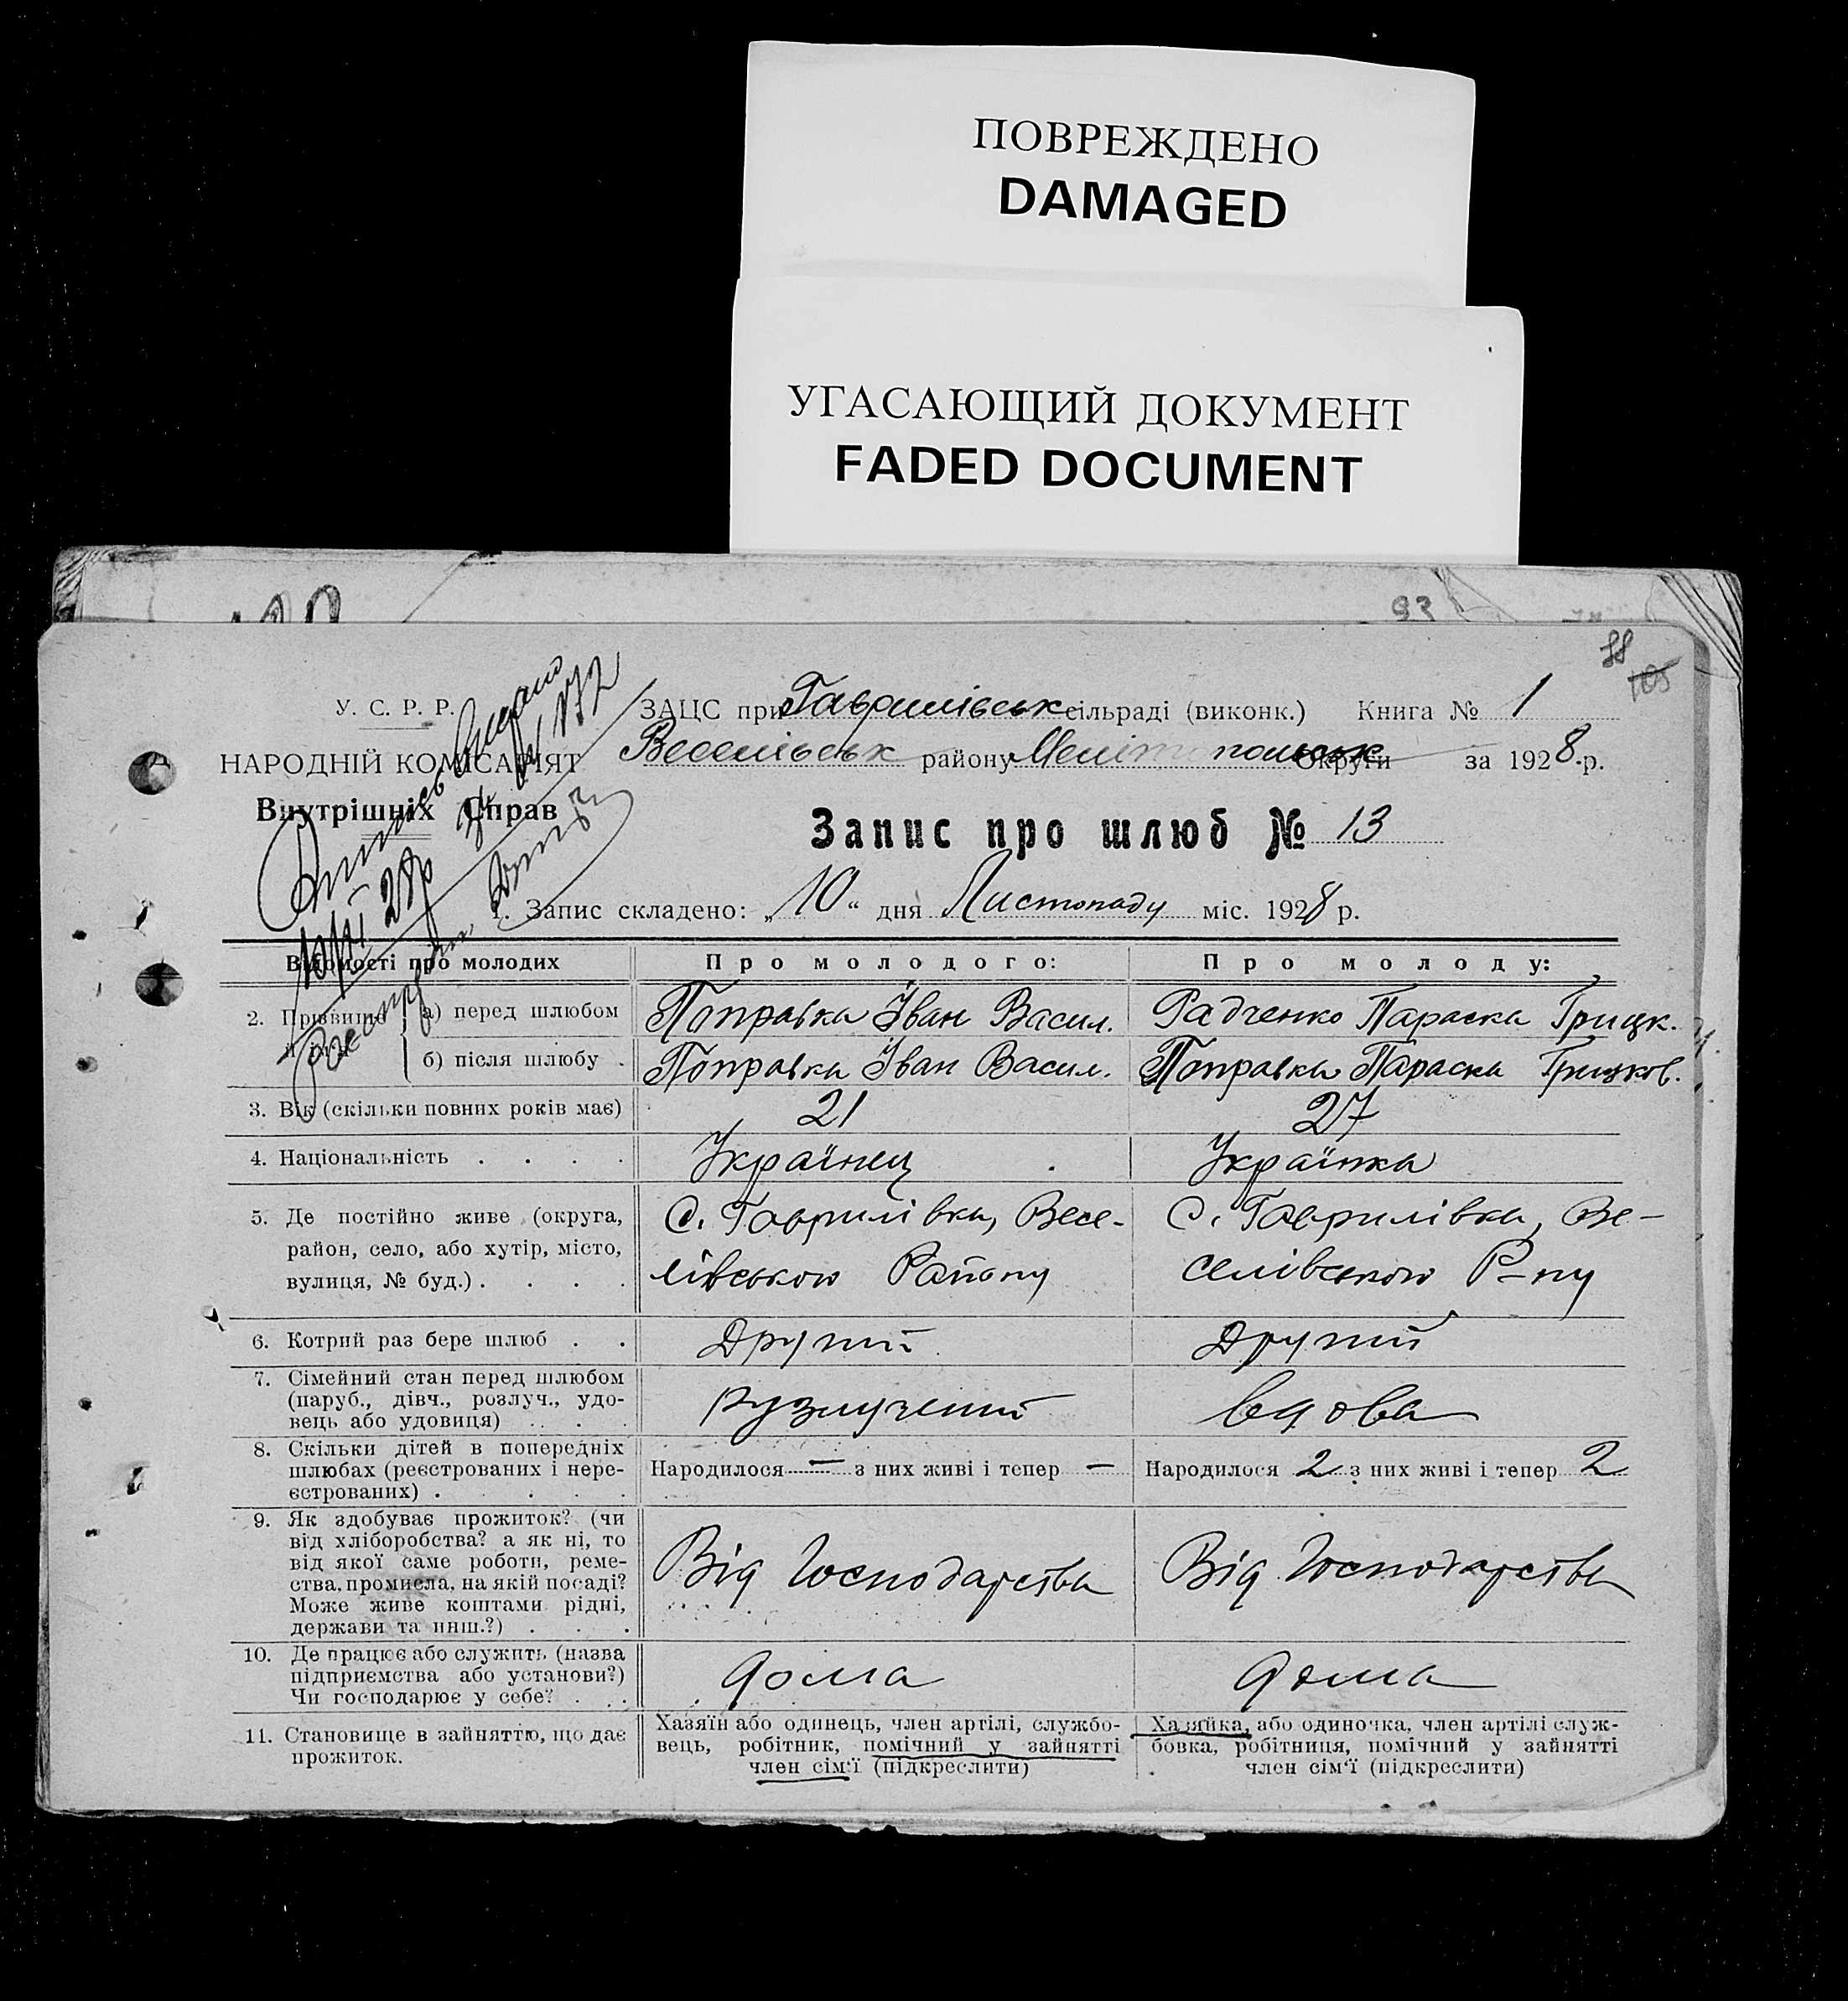 ПОВРЕЖДЕНО
DAMAGED
УГАСАЮЩИЙ ДОКУМЕНТ
FADED DOCUMENT
93
88
105
У. С. Р. Р.
НАРОДНІЙ КОМІСАРІЯТ
Внутрішніх Справ
ЗАЦС при Гаврилівськ сільраді (виконк.) Книга № 1
Веселівськ району Мелітопольськ Округи за 1928 р.
Запис про шлюб № 13
1. Запис складено: „10“ дня Листопаду міс. 1928 р.
Відомості про молодих
Про молодого:
Про молоду:
2. Прізвище
а) перед шлюбом
Поправка Іван Васил.
Радченко Параска Грицк.
б) після шлюбу
Поправка Іван Васил.
Поправка Параска Грицков.
3. Вік (скільки повних років має)
21
27
4. Національність . . . .
Українец
Українка
5. Де постійно живе (округа,
район, село, або хутір, місто,
вулиця, № буд.) . . . .
С. Гаврилівка, Весе-
лівського Району
С. Гаврилівка, Ве-
селівського Р-ну
6. Котрий раз бере шлюб . .
Другий
Другий
7. Сімейний стан перед шлюбом
(паруб., дівч., розлуч., удо-
вець або удовиця) . . .
рузлучений
вдова
8. Скільки дітей в попередніх
шлюбах (реєстрованих і нере-
єстрованих) . . . . .
Народилося — з них живі і тепер —
Народилося 2 з них живі і тепер 2
9. Як здобуває прожиток? (чи
від хліборобства? а як ні, то
від якої саме роботи, реме-
ства, промисла, на якій посаді?
Може живе коштами рідні,
держави та инш.?) . . .
Від Господарства
Від Господарства
10. Де працює або служить (назва
підприємства або установи?)
Чи господарює у себе? . . .
дома
дома
11. Становище в зайняттю, що дає
прожиток.
Хазяїн або одинець, член артілі, службо-
вець, робітник, помічний у зайнятті
член сім'ї (підкреслити)
Хазяйка, або одиночка, член артілі служ-
бовка, робітниця, помічний у зайнятті
член сім'ї (підкреслити)